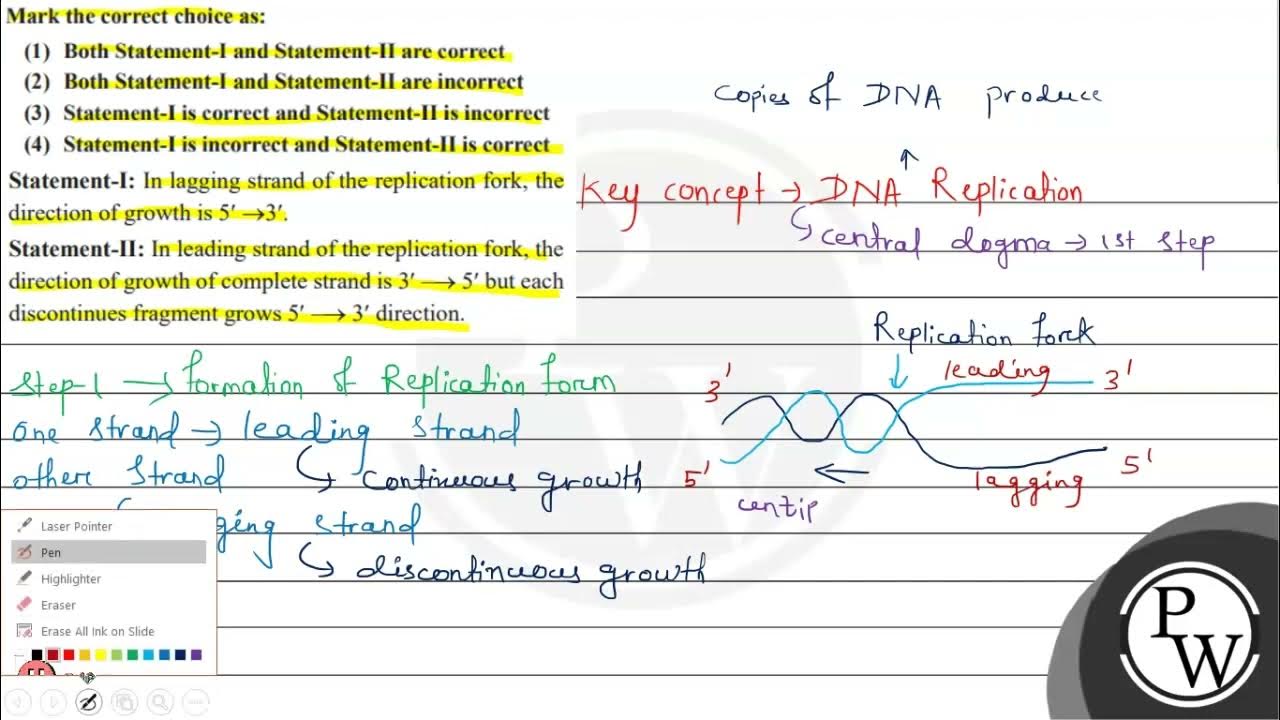 Mark the correct choice as:
(1) Both Statement-I and Statement-II are correct
(2) Both Statement-I and Statement-II are incorrect
(3) Statement-I is correct and Statement-II is incorrect
(4) Statement-I is incorrect and Statement-II is correct
Statement-I: In lagging strand of the replication fork, the
direction of growth is 5′ →3′.
Statement-II: In leading strand of the replication fork, the
direction of growth of complete strand is 3′ ⟶ 5′ but each
discontinues fragment grows 5′ ⟶ 3′ direction.
Copies of DNA produce
↑
Key concept → DNA Replication
↳ central dogma → 1st step
Step-1 → formation of Replication forum
One strand → leading strand
↳ Continuous growth
other strand
ging strand
↳ discontinuous growth
Replication forck
↓
leading 3'
3'
5'
←
centip
lagging 5'
Laser Pointer
Pen
Highlighter
Eraser
Erase All Ink on Slide
PW
PW